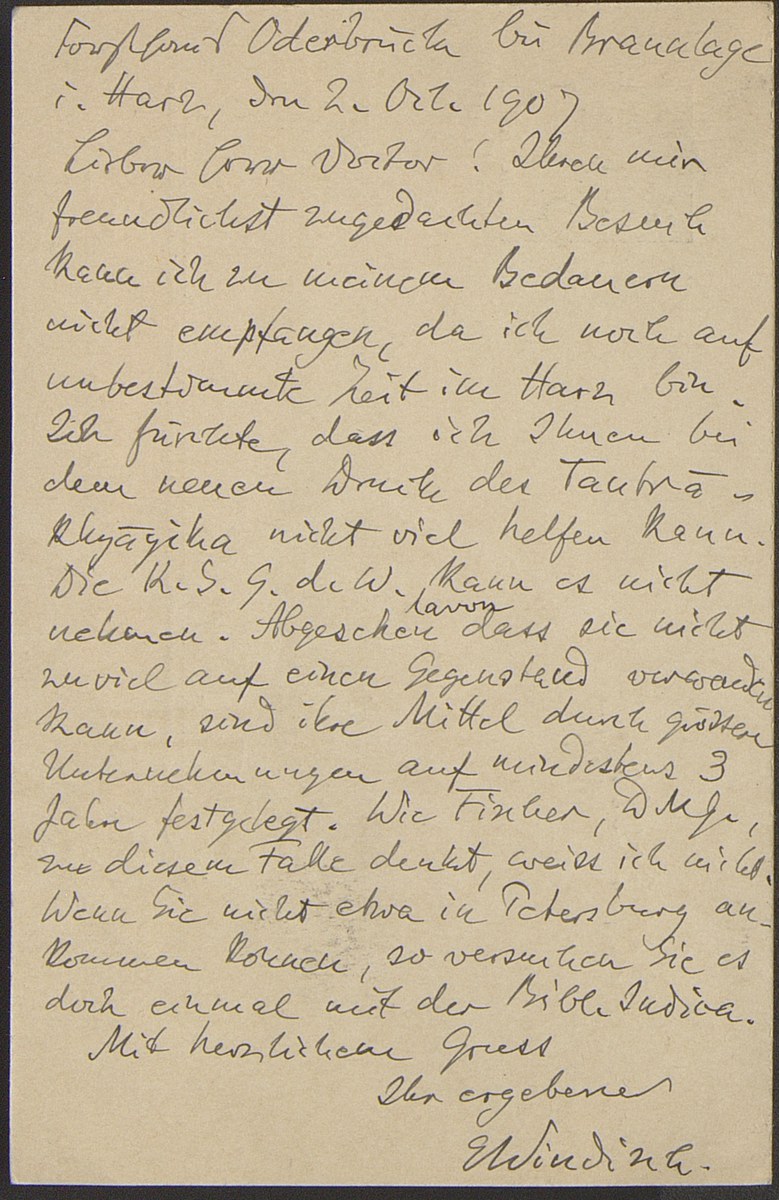 Forsthaus Oderbrück bei Braunlage
i. Harz, den 2. Oct. 1907
Lieber Herr Doctor! Ihren mir
freundlichst zugedachten Besuch
kann ich zu meinem Bedauern
nicht empfangen, da ich noch auf
unbestimmte Zeit im Harz bin.
Ich fürchte, dass ich Ihnen bei
dem neuen Druck des Tantrā-
khyāyika nicht viel helfen kann.
Die K. S. G. d. W. kann es nicht
nehmen. Abgesehen davon dass sie nicht
zuviel auf einen Gegenstand verwenden
kann, sind ihre Mittel durch grössere
Unternehmungen auf mindestens 3
Jahre festgelegt. Wie Fischer, DMG,
zu diesem Falle denkt, weiss ich nicht.
Wenn Sie nicht etwa in Petersburg an-
kommen können, so versuchen Sie es
doch einmal mit der Bibl. Indica.
Mit herzlichem Gruss
Ihr ergebener
EWindisch.